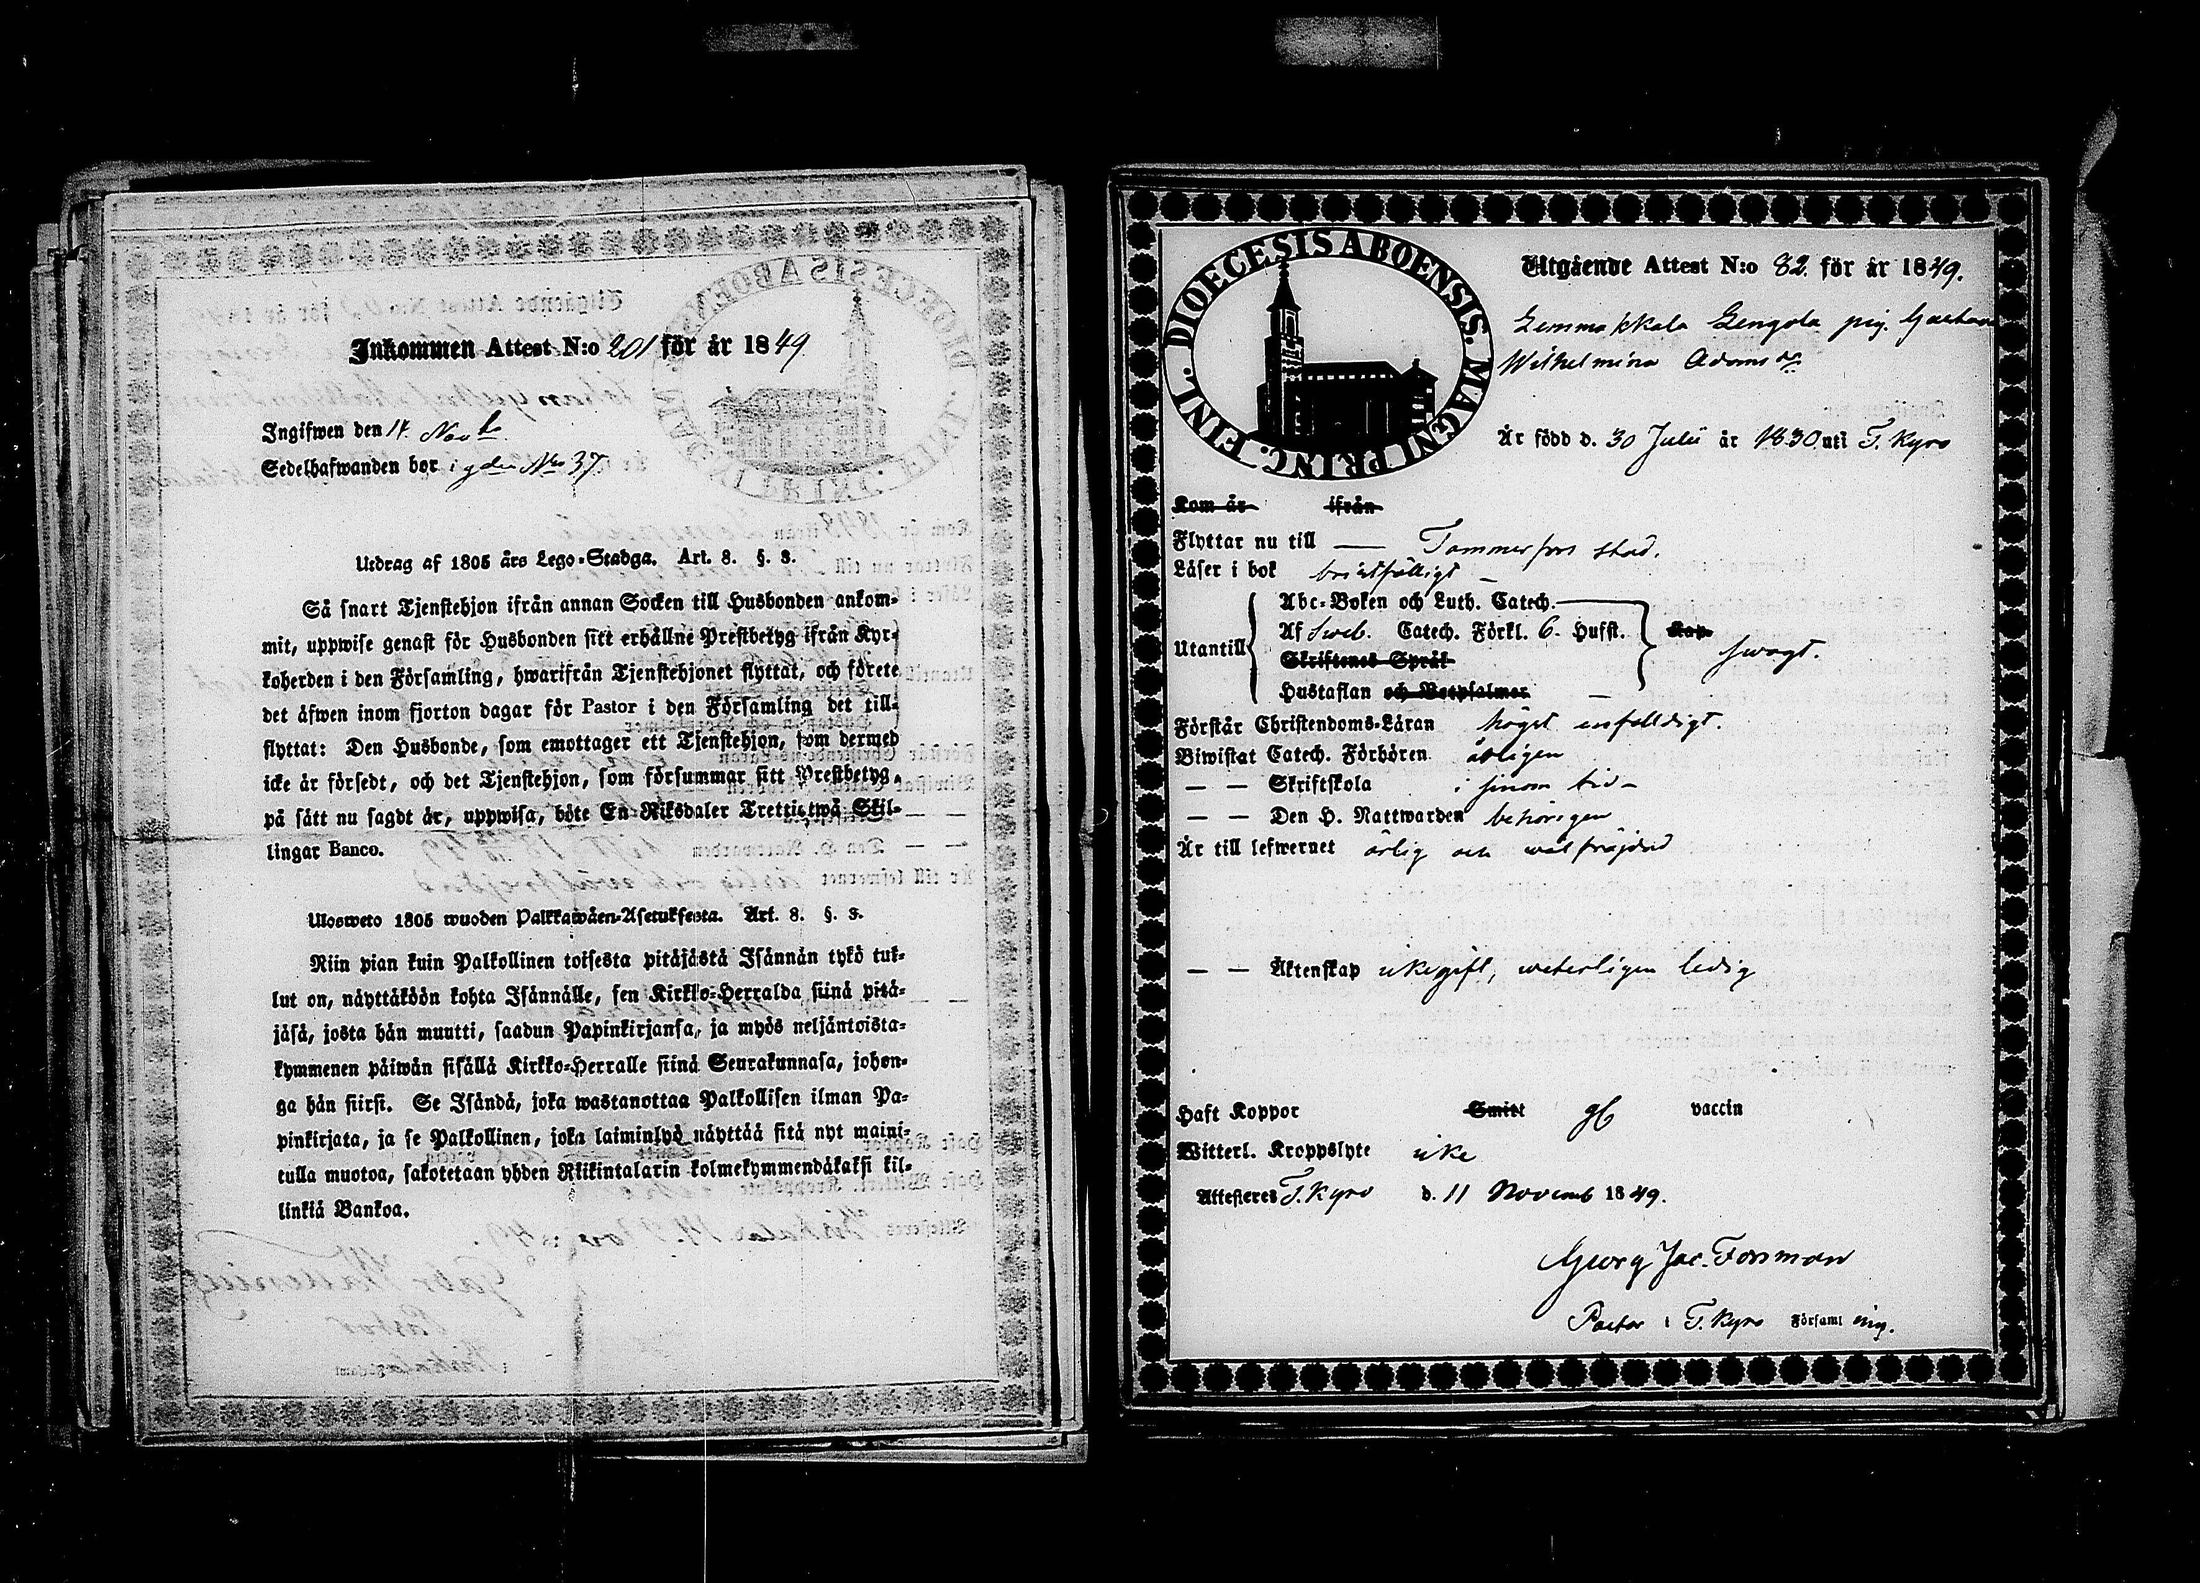 Inkommen Attest N:o 201 för år 1849
Ingifwen den 14. Nov
Sedelhafwanden bor i gden No 37.
Utdrag af 1805 års Lego-Stadga. Art. 8. §. 3.
Så snart Tjenstehjon ifrån annan Socken till Husbonden ankom-
mit, uppwise genast för Husbonden sitt erhållne Prestbetyg ifrån Kyr-
koherden i den Församling, hwarifrån Tjenstehjonet flyttat, och förete
det äfwen inom fjorton dagar för Pastor i den Församling det till-
flyttat: Den Husbonde, som emottager ett Tjenstehjon, som dermed
icke är försedt, och det Tjenstehjon, som försummar sitt Prestbetyg,
på sätt nu sagdt är, uppwisa, böte En Riksdaler Trettio twå Skil-
lingar Banco.
Ulosweto 1805 wuoden Palkkawäen-Asetuksesta. Art. 8. §. 3.
Niin pian kuin Palkollinen toisesta pitäjästä Isännän tykö tul-
lut on, näyttäköön kohta Isännälle, sen Kirkko-Herralda siinä pitä-
jäsä, josta hän muutti, saadun Papinkirjansa, ja myös neljäntoista-
kymmenen päiwän sisällä Kirkko-Herralle siinä Seurakunnasa, johon-
ga hän siirsi. Se Isändä, joka wastanottaa Palkollisen ilman Pa-
pinkirjata, ja se Palkollinen, joka laiminlyö näyttää sitä nyt maini-
tulla muotoa, sakotetaan yhden Riikintalarin kolmekymmendäkaksi kil-
linkiä Bankoa.
DIOECESIS ABOENSIS. MAGNI PRINC. FINL.
Utgående Attest N:o 82. för år 1849.
pig.
Wilhelmina Adamsdr
Är född d. 30 Julii år 1830 uti T. Kyro
Kom år ifrån
Flyttar nu till Tammerfors stad.
Läser i bok bristfälligt
Abc-Boken och Luth. Catech.
Utantill Af Sweb. Catech. Förkl. 6. Hufst. Kap. swagt.
Skriftenes Språk
Hustaflan och Botpsalmer
Förstår Christendoms-Läran högst enfalldigt.
Biwistat Catech. Förhören årligen
— — Skriftskola i sinom tid
— — Den H. Nattwarden behörigen
Är till lefwernet ärlig och wälfräjdad
— — Äktenskap icke gift, weterligen ledig
Haft Koppor Smitt gb vaccin
Witterl. Kroppslyte icke
Attesteres T. Kyro d. 11 Novemb 1849.
Georg Jac. Forsman
Pastor i T. Kyro Församling.